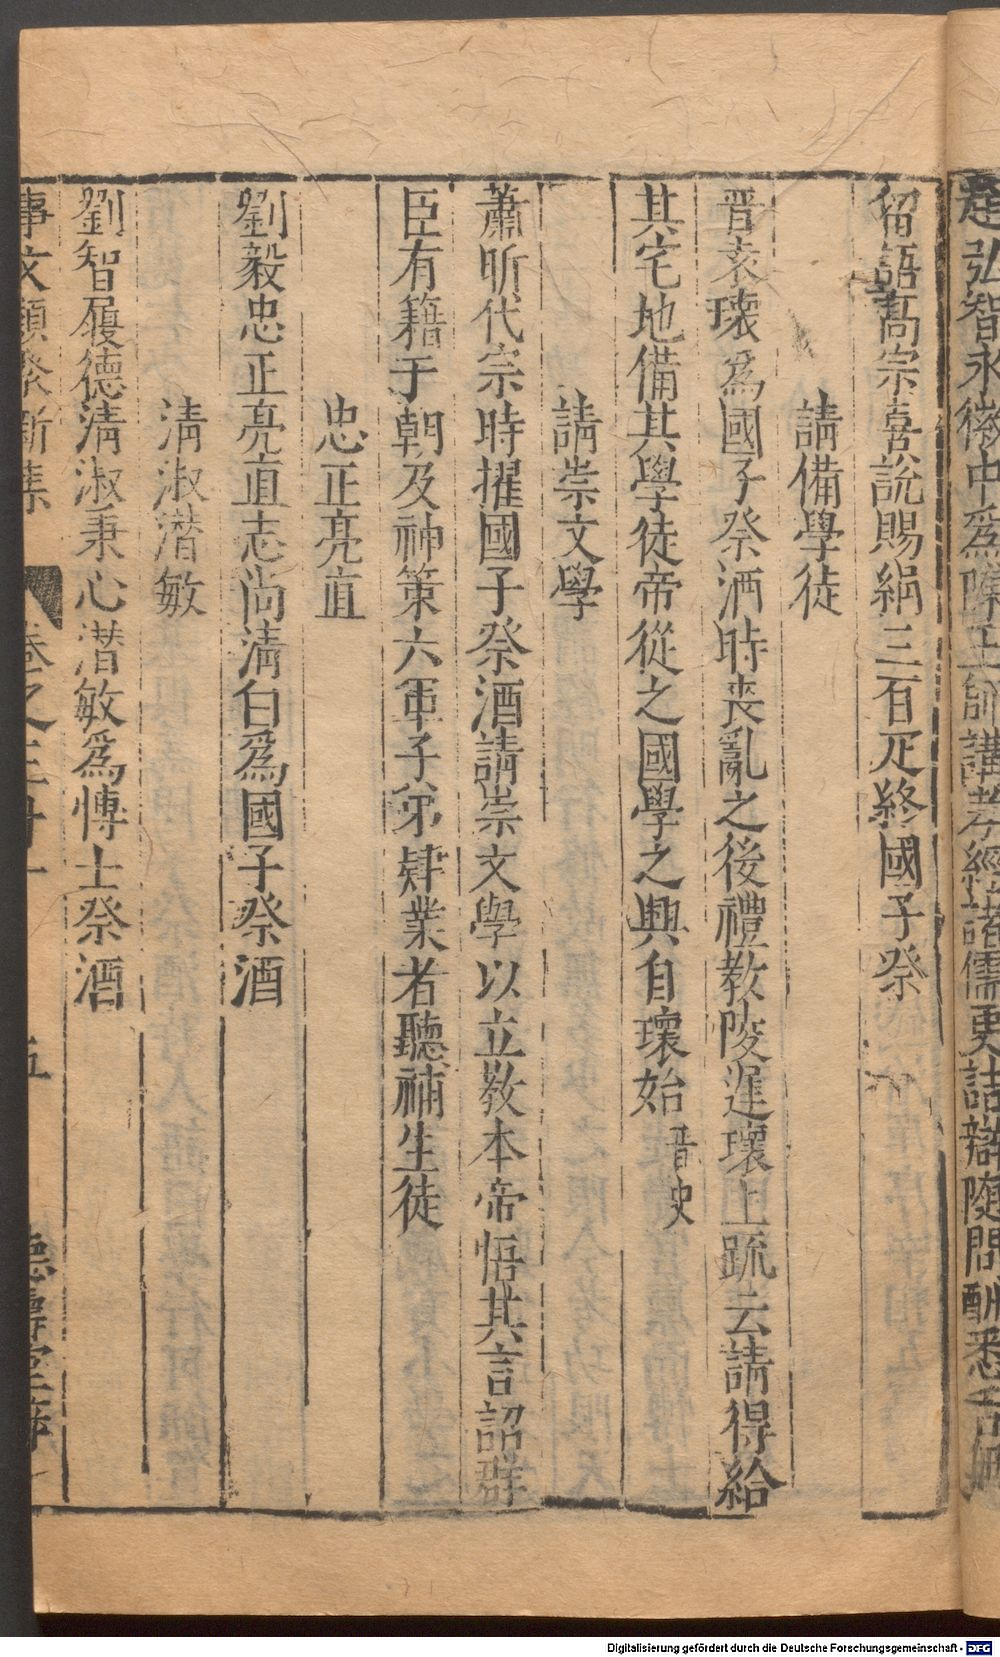 趙弘智永徽中爲陳王師講孝經諸儒更詰辯隨問酬悉
留語高宗喜說賜絹三百疋終國子祭
請備學徒
晉袁瓌爲國子祭洒時丧亂之後禮教陵遲瓌上疏云請得給
其宅地備其學徒帝從之國學之興自瓌始 晋史
請崇文學
蕭昕代宗時擢國子祭酒請崇文學以立教本帝悟其言詔群
臣有籍于朝及神策六軍子弟肄業者聽補生徒
忠正亮直
劉毅忠正亮直志尚清白爲國子祭酒
清淑潜敏
劉智履德清淑秉心潜敏爲博士祭酒
事文類聚新集 卷之三十一 五 德壽堂梓
Digitalisierung gefördert durch die Deutsche Forschungsgemeinschaft - DFG